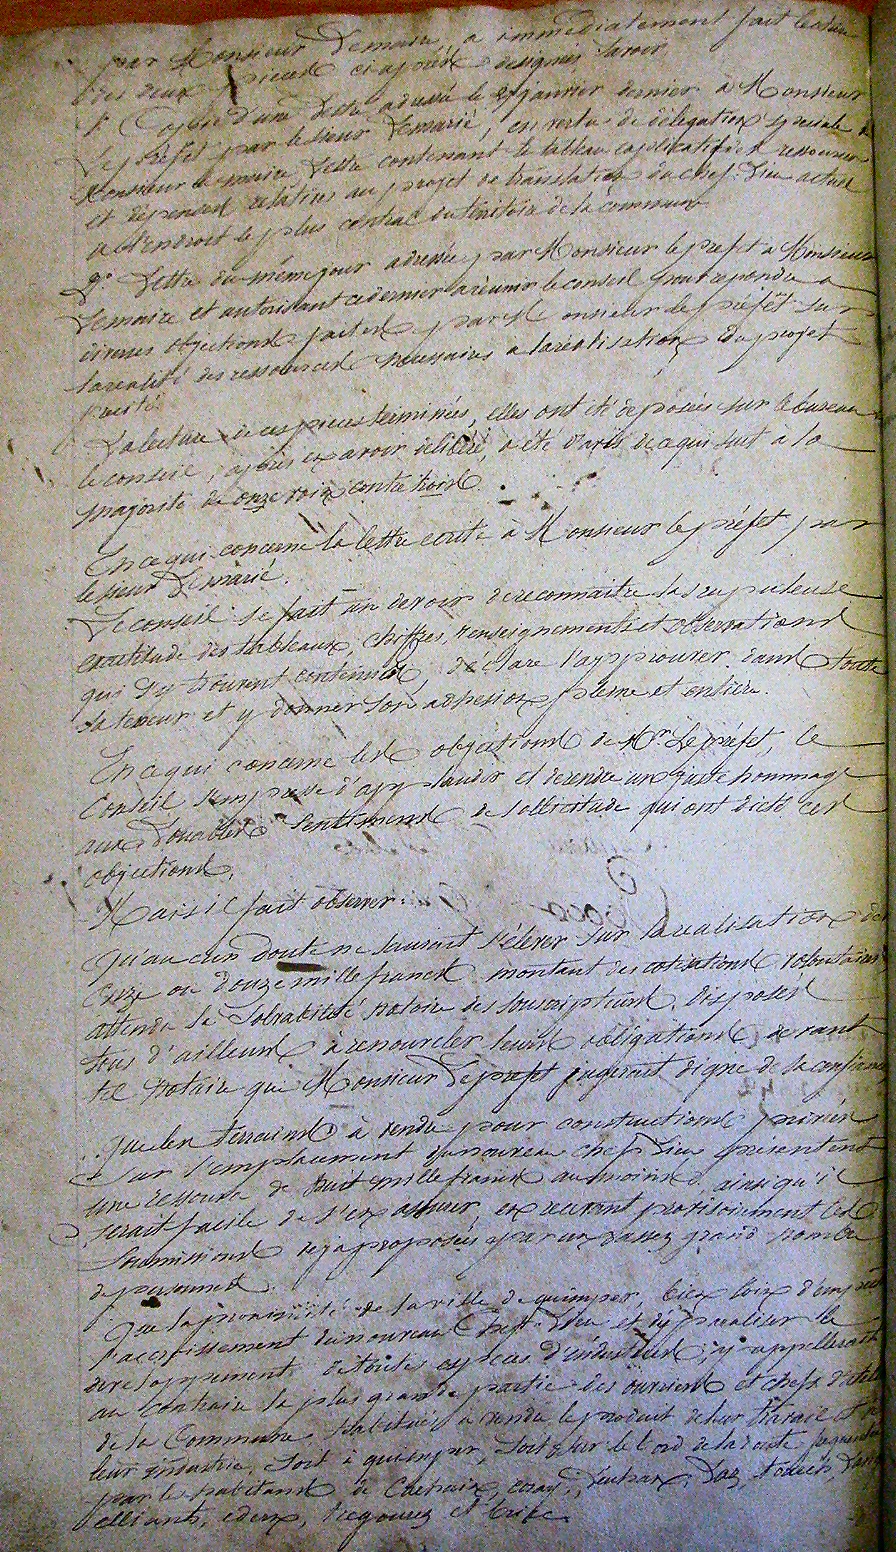 par Monsieur Lemaire, a immediatement fait lecture
des deux pieces ci après designés, savoir
1° Copie d'une lettre adressée le 27 janvier dernier à Monsieur
Le Préfet par le sieur Lemarié, en vertu de délégation speciale de
Monsieur le maire, lettre contenant le tableau explicatif de ressources
et dépenses relatives au projet de translation du chef-lieu actuel
a l'endroit le plus central du territoire de la commune
2° Lettre du même jour adressée par Monsieur le prefet à Monsieur
Lemaire et autorisant ce dernier a reunir le conseil pour repondre a
diverses objections faites par Monsieur le préfêt sur
la realité des ressources necessaires a la realisation du projet
precité.
La lecture de ces pieces terminées, elles ont été deposées sur le bureau
le conseil, après en avoir délibéré, a été d'avis de ce qui suit a la
majorité de onze voix contre trois.
En ce qui concerne la lettre ecrite à Monsieur le préfet par
le sieur Lemarié.
Le conseil se fait un devoir de reconnaitre la scrupuleuse
exactitude des tableaux, chiffres, renseignements et observations
qui s'y trouvent contenus, déclare l'approuver dans toute
sa teneur et y donner son adhesion pleine et entière.
En ce qui concerne les objections de Mr. Le préfet, le
Conseil s'empresse d'applaudir et de rendre un juste hommage
aux louables sentiments de sollicitude qui ont dicté ces
objections.
Mais il fait observer:
Qu'aucun doute ne saurait s'élever sur la realisation de
onze ou douze mille francs montant des cotisations volontaires
attendu la solvabilité notoire des souscripteurs, disposés
tous d'ailleurs à renouveler leurs obligations devant
tel notaire que Monsieur Le prefet jugerait digne de sa confiance
Que les terrains à vendre pour constructions privées
sur l'emplacement du nouveau chef lieu présentent
une ressource de huit mille francs au moins, ainsi qu'il
serait facile de s'en assurer en recevant provisoirement les
soumissions deja proposées par un assez grand nombre
de personnes.
Que la proximité de la ville de quimper, bien loin d'empêcher
l'accroissement du nouveau Chef-Lieu et de paraliser le
developpement de toutes espèces d'industries, y appellera
au contraire la plus grande partie des ouvriers et chefs d'atelier
de la Commune habitués à vendre le produit de leur travail et de
leur industrie, soit à quimper, soit sur le bord de la route frequentée
par les habitants de Carhaix, coray, Leuhan, Laz, trourch,
elliant, edern, Briec